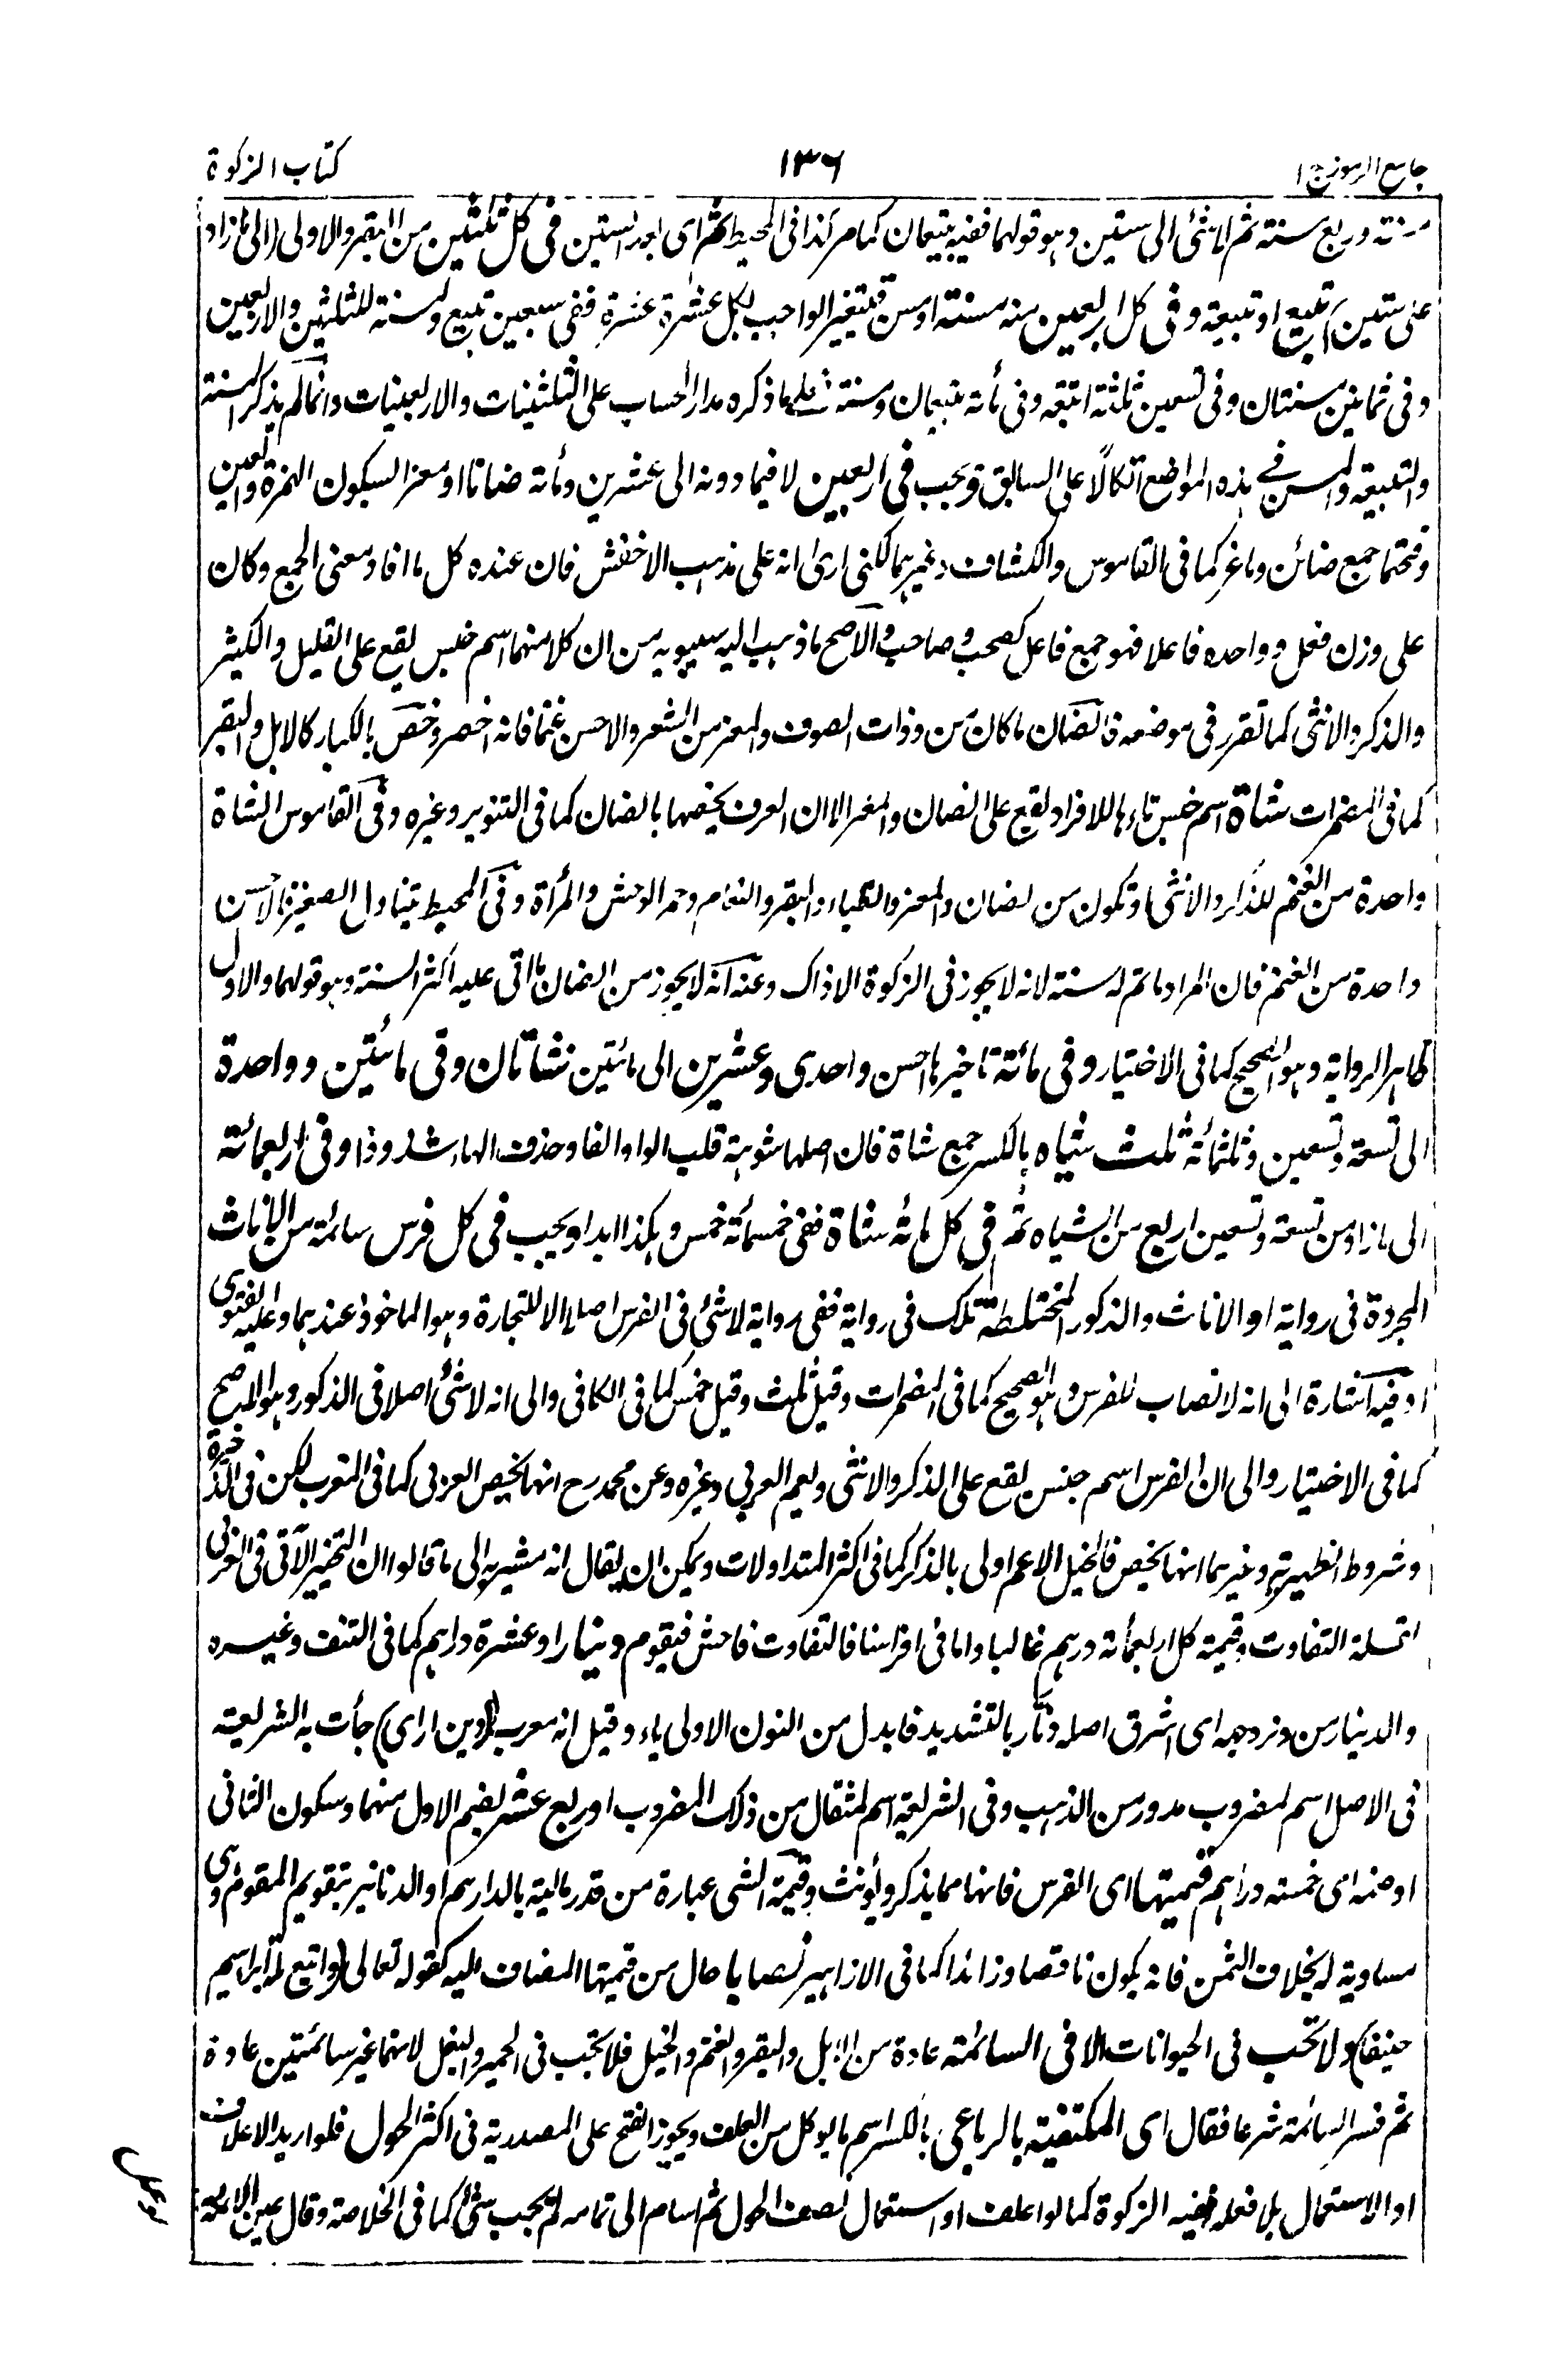 جامع الرموز ج ١
١٣٦
كتاب الزكوة
مسنة وربع مسنة ثم لا شئ الى ستين وهو قولهما ففيه تبيعان كما مر كذا فى المحيط ثم اى بعد الستين فى كل ثلثين من البقر والاولى (الى ما زاد
على ستين) تبيع او تبيعة وفى كل اربعين منه مسنة او مسن فيتغير الواجب بكل عشرة عشرة ففى سبعين تبيع ومسنة للثلثين والاربعين
وفى ثمانين مسنتان وفى تسعين ثلثة اتبعة وفى مأة تبيعان ومسنة فعلى ما ذكره مدار الحساب على الثلثينات والاربعينات وانما لم يذكر المسنة
والتبيعة والمسن فى هذه المواضع اتكالًا على السابق ويجب فى اربعين لا فيما دونه الى عشرين ومأة ضانا او معزا بسكون الهمزة والعين
وفتحها جمع ضائن وماعز كما فى القاموس والكشاف وغيرهما لكنى ارى انه على مذهب الاخفش فان عنده كل ما افاد معنى الجمع وكان
على وزن فعل وواحده فاعلا فهو جمع فاعل كصحب وصاحب والاصح ما ذهب اليه سيبويه من ان كلا منهما اسم جنس يقع على القليل والكثير
والذكر والانثى كما تقرر فى موضعه فالضان ما كان من ذوات الصوف والمعز من الشعر والاحسن غنما فانه اخصر وخص بالكبار كالابل والبقر
كما فى المضمرات شاة اسم جنس تاءها للافراد يقع على الضان والمعز الا ان العرف يخصها بالضان كما فى التنوير وغيره وفى القاموس الشاة
واحدة من الغنم للذكر والانثى وتكون من الضان والمعز والظباء والبقر والنعام وحمر الوحش والمرأة وفى المحيط يتناول الصغيرة فالاحسن
واحدة من الغنم فان المراد ما تم له سنة لانه لا يجوز فى الزكوة الا ذاك وعنه انه لا يجوز من الضان ما اتى عليه اكثر السنة وهو قولهما والاول
ظاهر الرواية وهو الصحيح كما فى الاختيار وفى مائة تاخيرها احسن واحدى وعشرين الى مائتين شاتان وفى مائتين وواحدة
الى تسعة وتسعين وثلثمائة ثلث شياه بالكسر جمع شاة فان اصلها شوهة قلب الواو الفا وحذف الهاء شذوذا وفى اربعمائة
الى ما زاد من تسعة وتسعين اربع من الشياه ثم فى كل مائة شاة ففى خمسمائة خمس وهكذا ابدا ويجب فى كل فرس سائمة من الاناث
المجردة فى رواية او الاناث والذكور المختلطة تلك فى رواية ففى رواية لا شئ فى الفرس اصلا الا للتجارة وهو الماخوذ عندهما وعليه الفتوى
وفيه اشارة الى انه لا نصاب للفرس وهو الصحيح كما فى المضمرات وقيل ثلث وقيل خمس كما فى الكافى والى انه لا شئ اصلا فى الذكور وهو الاصح
كما فى الاختيار والى ان الفرس اسم جنس يقع على الذكر والانثى ويعم العربى وغيره وعن محمد رح انها يخص العربى كما فى المغرب لكن فى الذخيرة
وشروط الظهيرية وغيرهما انها يخص فالخيل الاعم اولى بالذكر كما فى اكثر المتداولات ويمكن ان يقال انه مشير الى ما قالوا ان التخيير الآتى فى العربى
لقلة التفاوت وقيمة كل اربعمائة درهم غالبا واما فى افراسنا فالتفاوت فاحش فيقوم دينارا وعشرة دراهم كما فى النتف وغيره
والدينار من دنر وجهه اى اشرق اصله دنّار بالتشديد فابدل من النون الاولى ياء وقيل انه معرب (دين ار اى) جأت به الشريعة
فى الاصل اسم لمضروب مدور من الذهب وفى الشريعة اسم لمثقال من ذلك المضروب او ربع عشر بضم الاول منهما وسكون الثانى
او ضمه اى خمسة دراهم قيمتها اى الفرس فانها مما يذكر ويؤنث وقيمة الشى عبارة من قدر مالية بالدارهم او الدنانير بتقويم المقوم وهى
مساوية له بخلاف الثمن فانه يكون ناقصا وزائدا كما فى الازاهير نصابا حال من قيمتها المضاف اليه كقوله تعالى (واتبع ملة ابراهيم
حنيفا) ولا تجب فى الحيوانات الا فى السائمة عادة من الابل والبقر والغنم والخيل فلا تجب فى الحمير والبغل لانهما غير سائمتين عادة
ثم فسر السائمة شرعا فقال اى المكتفية بالرعى بالكسر اسم ما يوكل من العلف ويجوز الفتح على المصدرية فى اكثر الحول فلو اريد الاعلاف
او الاستعمال بلا فعله ففيه الزكوة كما لو اعلف او استعمال نصف الحول ثم اسام الى تمامه لم تجب شئ كما فى الخلاصة وقال عين الائمة